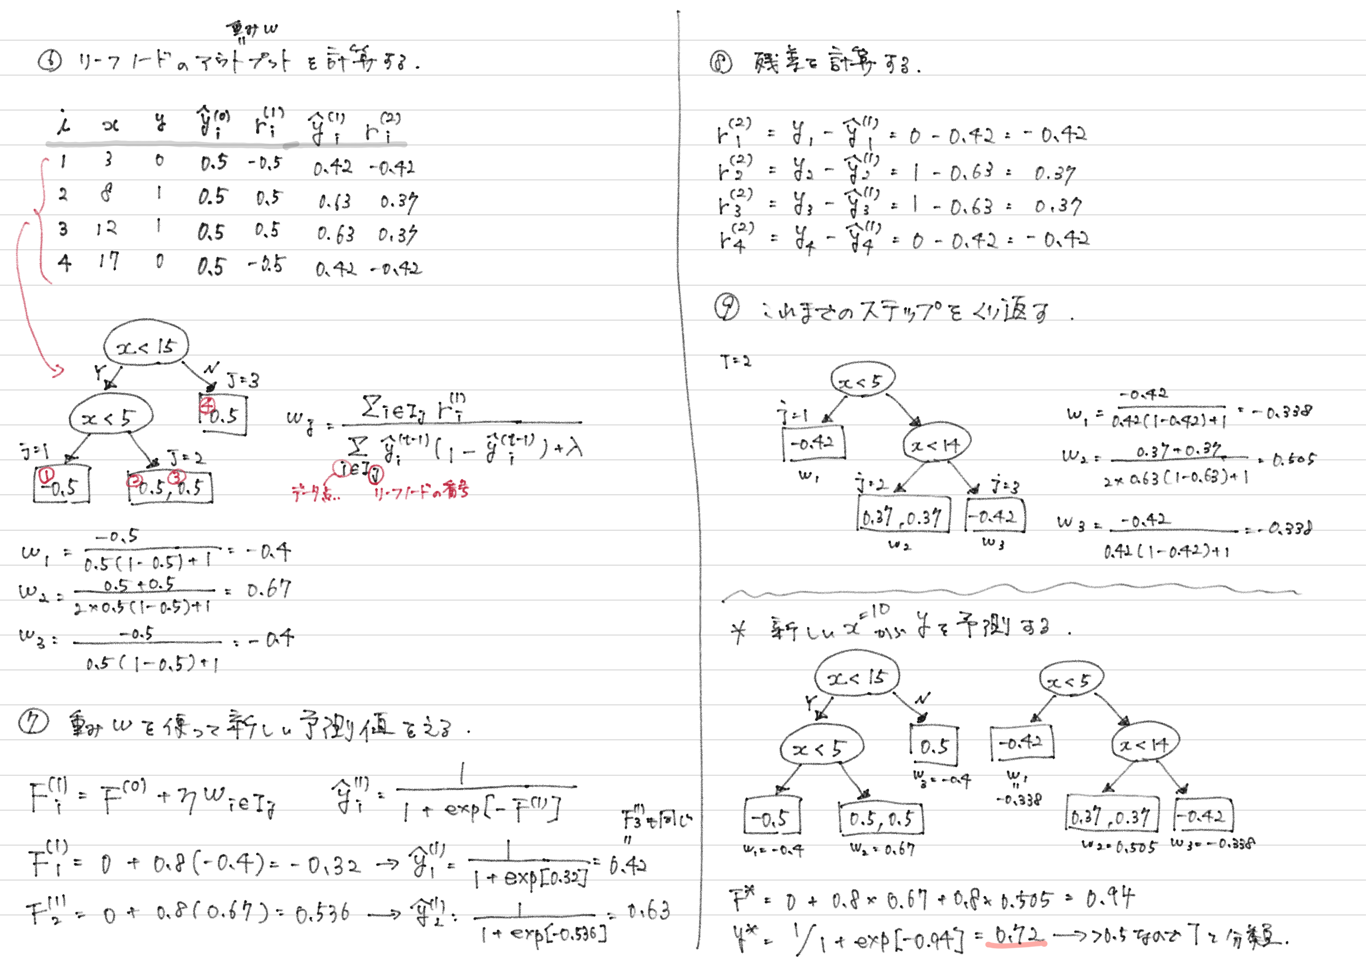 重みw
||
⑥ リーフノードのアウトプットを計算する.
i x y ŷ_i^(0) r_i^(1) ŷ_i^(1) r_i^(2)
1 3 0 0.5 -0.5 0.42 -0.42
2 8 1 0.5 0.5 0.63 0.37
3 12 1 0.5 0.5 0.63 0.37
4 17 0 0.5 -0.5 0.42 -0.42
x < 15
Y N
J=3
x < 5
④ 0.5
j=1 J=2
① -0.5
② 0.5, ③ 0.5
w_j = Σ_{i∈I_j} r_i^(1) / Σ_{i∈I_j} ŷ_i^(t-1) (1 - ŷ_i^(t-1)) + λ
データ点.. リーフノードの番号
w1 = -0.5 / 0.5(1-0.5)+1 = -0.4
w2 = 0.5+0.5 / 2×0.5(1-0.5)+1 = 0.67
w3 = -0.5 / 0.5(1-0.5)+1 = -0.4
⑦ 重みwを使って新しい予測値を える.
F_i^(1) = F^(0) + η w_{i∈I_j} ŷ_i^(1) = 1 / 1 + exp[-F^(1)]
F_3^(1)も同じ
||
F_1^(1) = 0 + 0.8(-0.4) = -0.32 → ŷ_1^(1) = 1 / 1+exp[0.32] = 0.42
F_2^(1) = 0 + 0.8(0.67) = 0.536 → ŷ_2^(1) = 1 / 1+exp[-0.536] = 0.63
⑧ 残差を計算する.
r_1^(2) = y_1 - ŷ_1^(1) = 0 - 0.42 = -0.42
r_2^(2) = y_2 - ŷ_2^(1) = 1 - 0.63 = 0.37
r_3^(2) = y_3 - ŷ_3^(1) = 1 - 0.63 = 0.37
r_4^(2) = y_4 - ŷ_4^(1) = 0 - 0.42 = -0.42
⑨ これまでのステップをくり返す.
T=2
x < 5
j=1
-0.42
w1
x < 14
j=2 j=3
0.37, 0.37
-0.42
w2 w3
w1 = -0.42 / 0.42(1-0.42)+1 = -0.338
w2 = 0.37+0.37 / 2×0.63(1-0.63)+1 = 0.505
w3 = -0.42 / 0.42(1-0.42)+1 = -0.338
* 新しいx=10からyを予測する.
x < 15
Y N
x < 5
0.5
w3=-0.4
-0.5
0.5, 0.5
w1=-0.4 w2=0.67
x < 5
-0.42
w1
||
-0.338
x < 14
0.37, 0.37
-0.42
w2=0.505 w3=-0.338
F* = 0 + 0.8×0.67 + 0.8×0.505 = 0.94
y* = 1/1+exp[-0.94] = 0.72 → >0.5なので1と分類.